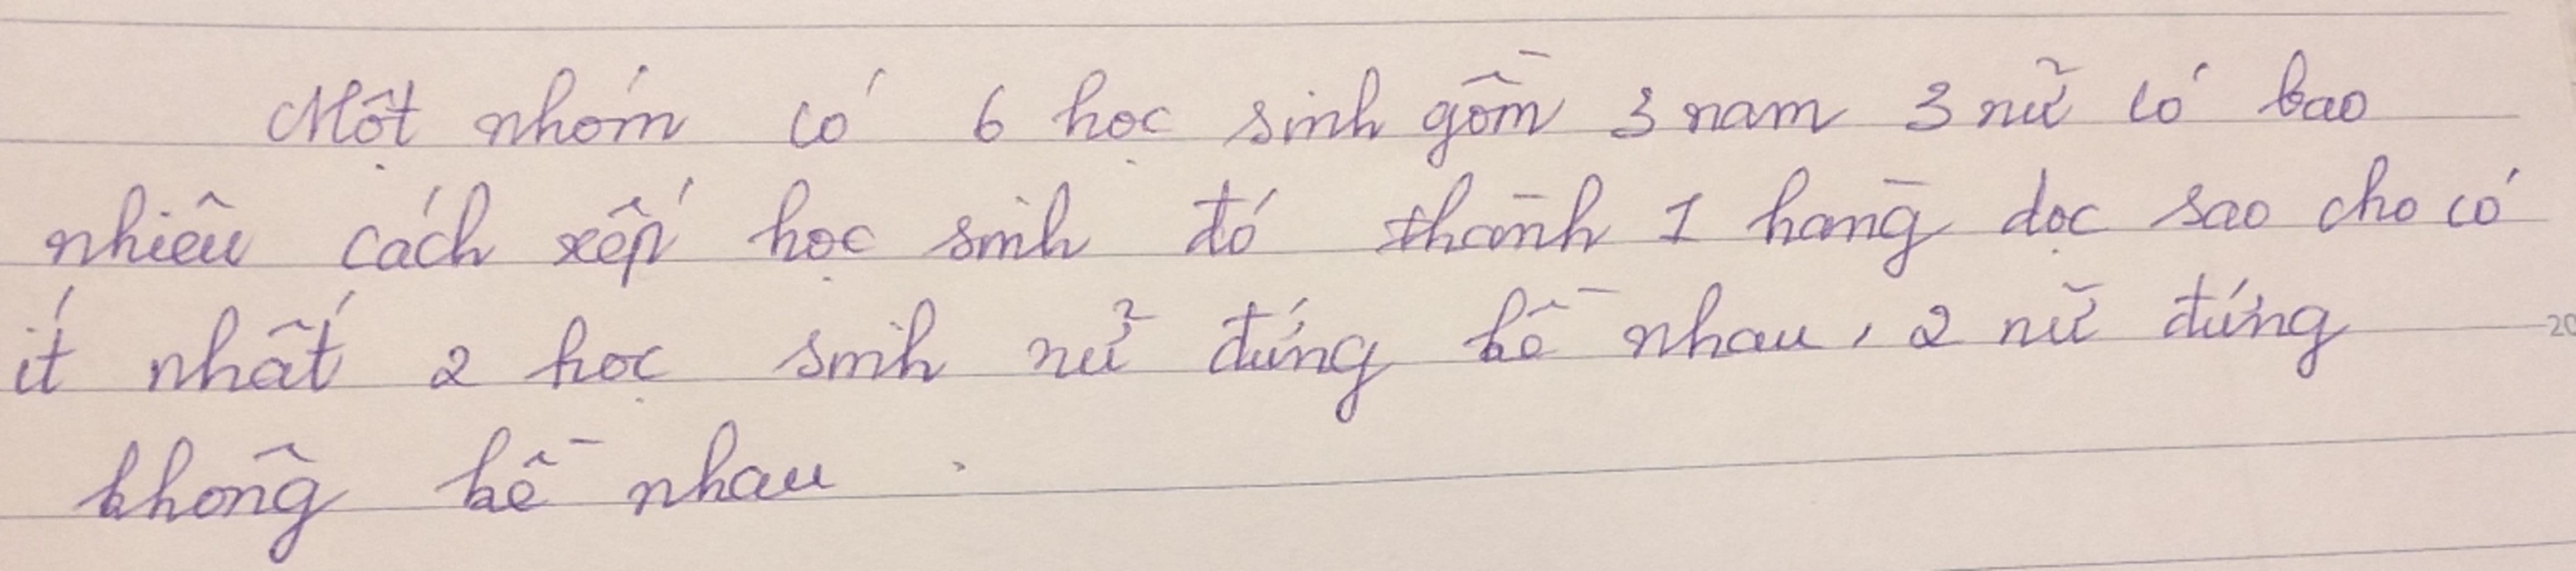 Một nhóm có 6 học sinh gồm 3 nam 3 nữ có bao
nhiêu cách xếp học sinh đó thành 1 hàng dọc sao cho có
ít nhất 2 học sinh nữ đứng kề nhau, 2 nữ đứng
không kề nhau.
20